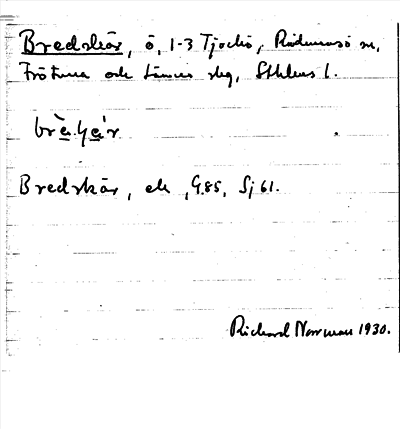 Bredskär, ö, 1-3 Tjockö, Rådmansö sn,
Frötuna och Länna skg, Sthlms l.
brè̱.ʃǽ̱r
Bredskär, ek, G.85, Sj 61.
Richard Norrman 1930.